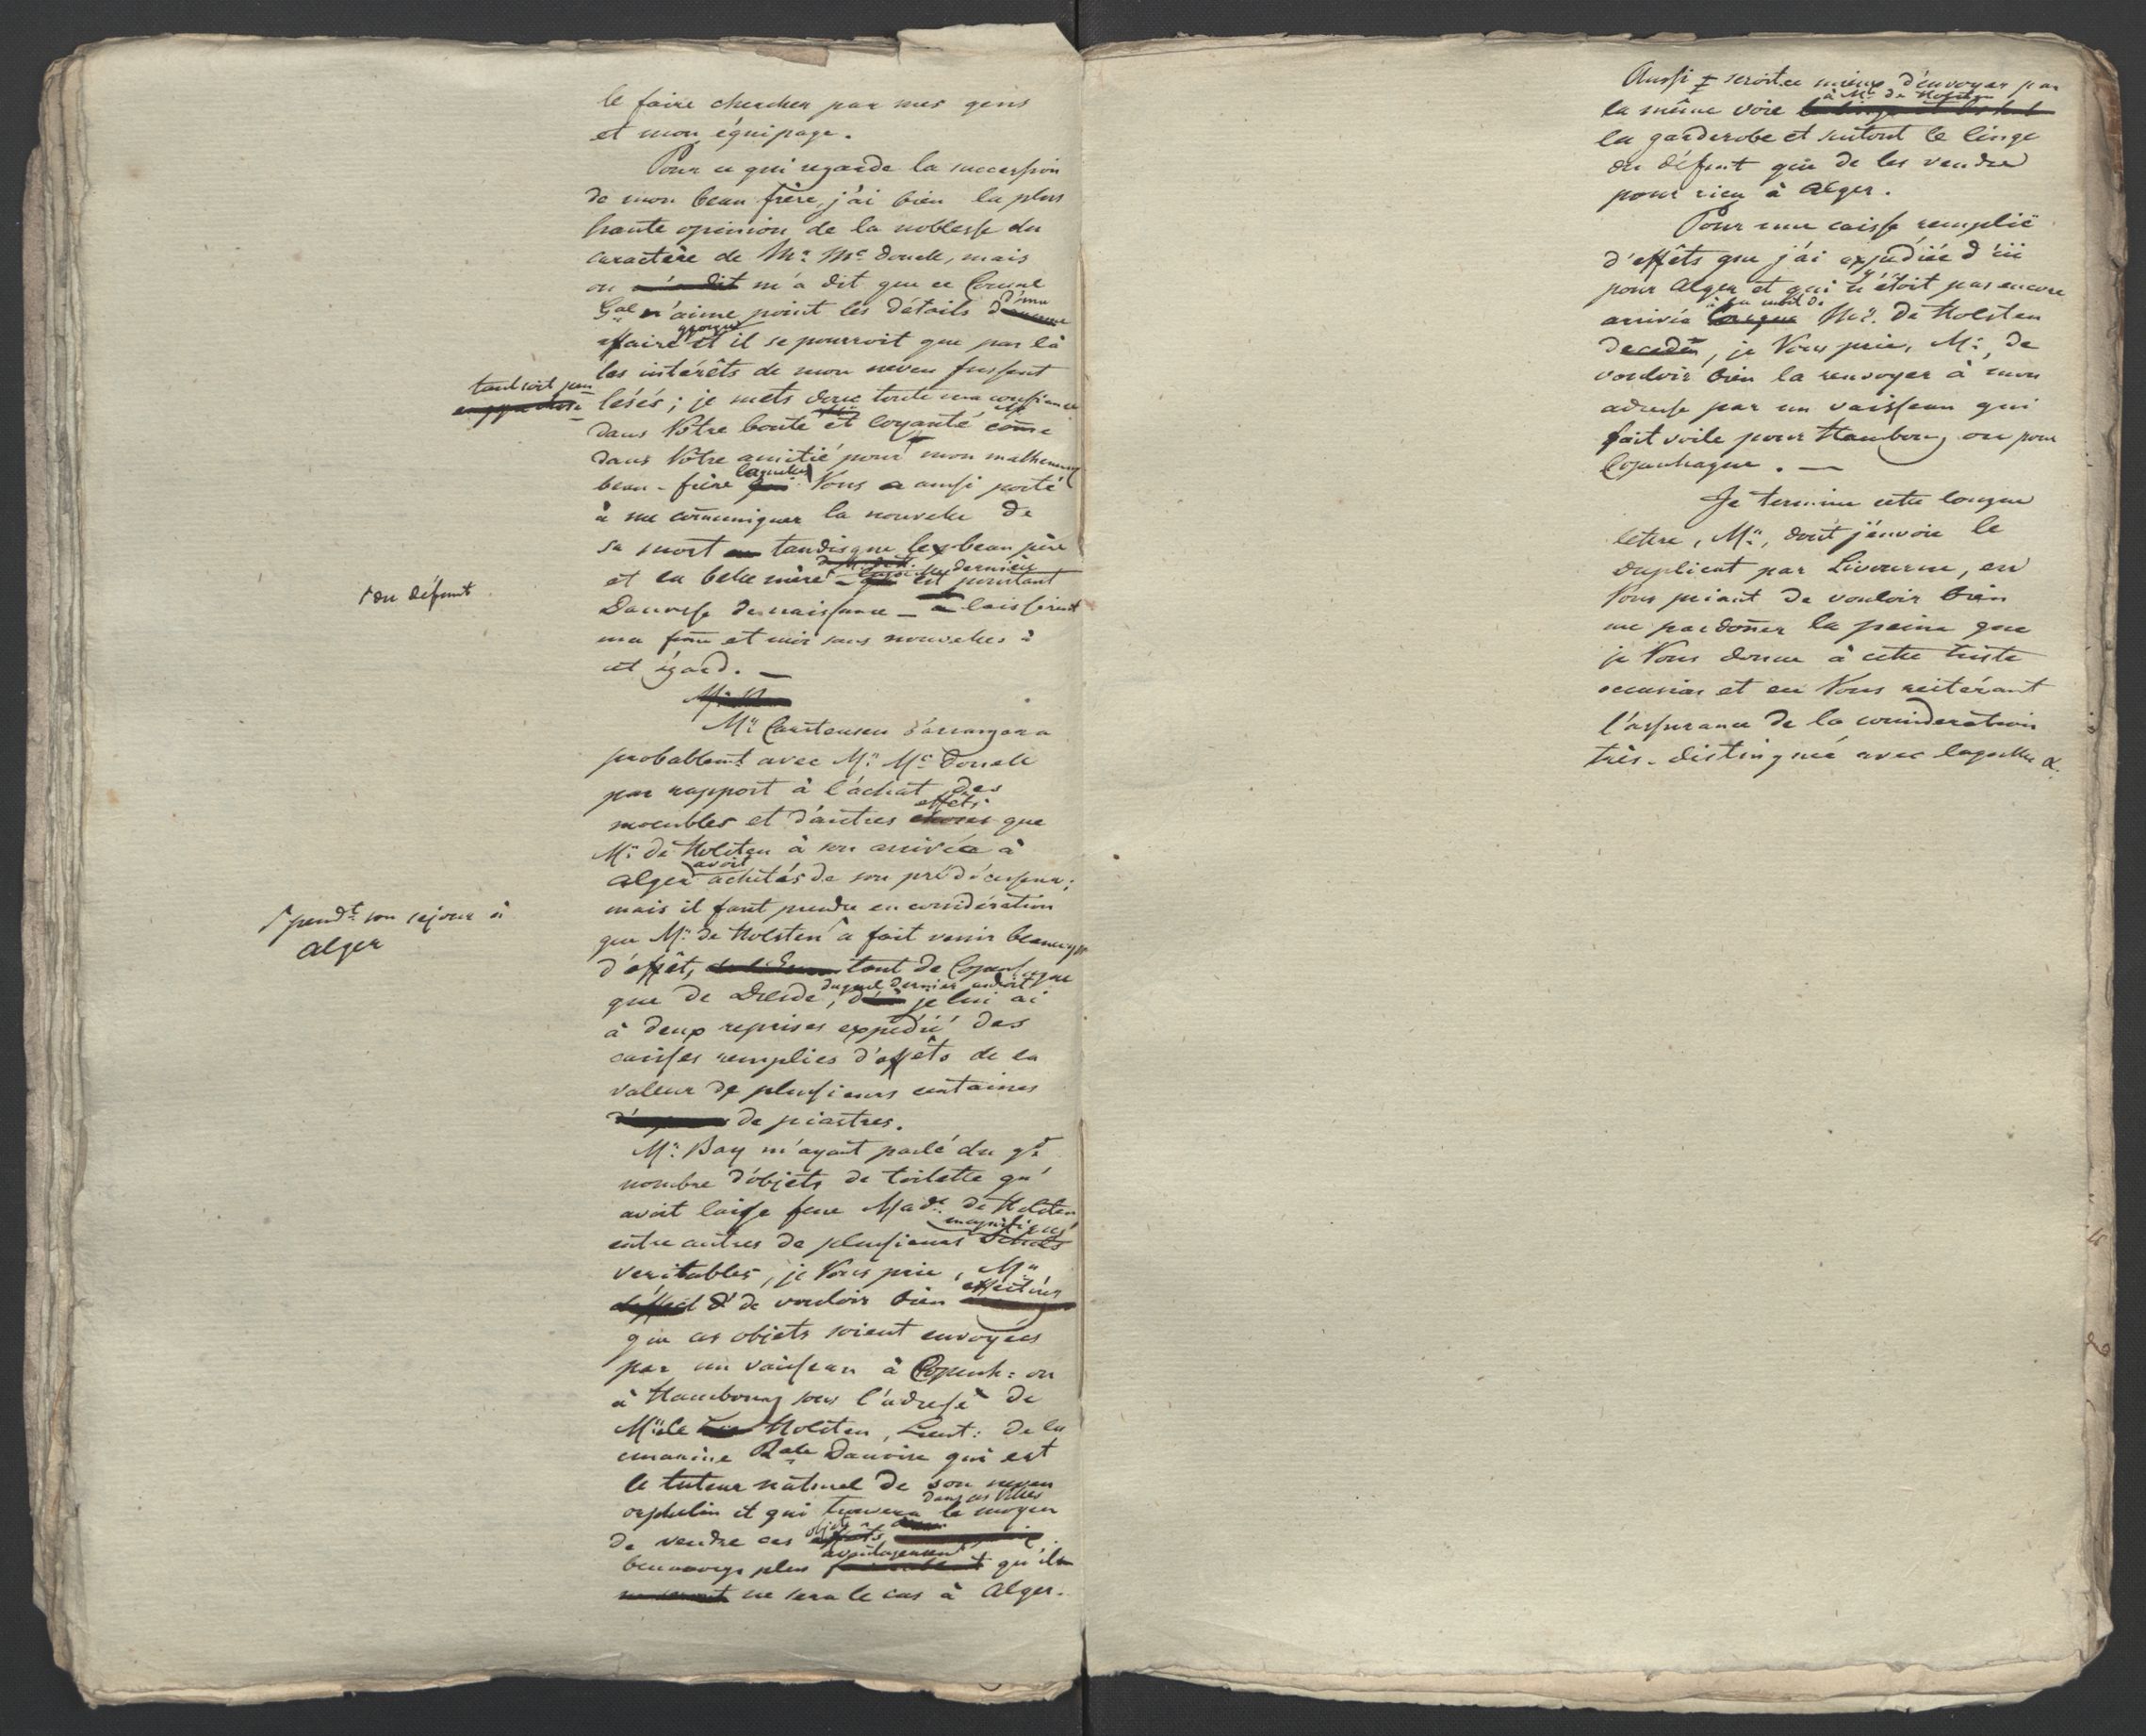 le faire chercher par mes gens
et mon équipage.
Pour ce qui regarde la succession
de mon beau frère, j'ai bien la plus
haute opinion de la noblesse du
caractère de Mr. Mc. Donell, mais
on m'a dit m'a dit que ce Consul
Gal n'aime point les détails d'une
affaire et il se pourroit que par là
les intérêts de mon neveu fussent
tant soit peu
lésés; je mets donc toute ma confiance
dans Votre bonté et loyauté come
dans Votre amitié pour mon malheureux
beau-frère laquelle Vous a aussi porté
à me comuniquer la nouvelle de
sa mort tandisque le beau père
et la belle mère dernière est pourtant
du défunt
Danoise de naissance - laissèrent
ma fme et moi sans nouvelles à
cet égard. —
Mr. Carstensen s'arrangera
probablemt avec Mr. Mc. Donell
par rapport à l'achat des
meubles et d'autres effets que
Mr. de Holsten à son arrivée à
Alger avoit achetés de son prédécesseur;
mais il faut prendre en considération
que Mr. de Holsten a fait venir beaucoup
pendt. son sejour à
Alger
d'effêts tant de Copenhague
que de Dresde, duquel dernier endroit je lui ai
à deux reprises expédié des
caisses remplies d'effêts de la
valeur de plusieurs centaines
de piastres.
Mr. Bay m'ayant parlé du gd.
nombre d'objets de toilette qu'
avoit laissé feue Made. de Holsten
entre autres de plusieurs magnifiques Schals
veritables, je Vous prie, Mr.
de vouloir bien effectuer
que ces objets soient envoyés
par un vaisseau à Copenh: ou
à Hambourg sous l'adresse de
Mr. de Holsten, Lieut: de la
marine Rale Danoise qui est
le tuteur naturel de son neveu
orphelin et qui trouvera dans ces villes le moyen
de vendre ces objets
beaucoup plus avantageusement qu'il
ne sera le cas à Alger.
Aussi seroit-ce mieux d'envoyer par
la même voie à Mr. de Holsten
la garderobe et surtout le linge
du défunt que de les vendre
pour rien à Alger.
Pour une caisse remplië
d'effêts que j'ai expédiée d'ici
pour Alger et qui n'étoit pas encore
arrivée lorsque Mr. de Holsten
deceda, je Vous prie, Mr., de
vouloir bien la renvoyer à mon
adresse par un vaisseau qui
fait voile pour Hambourg ou pour
Copenhague. —
Je termine cette longue
lettre, Mr., dont j'envoie le
duplicat par Livourne, en
Vous priant de vouloir bien
me pardoner la peine que
je Vous donne à cette triste
occasion et en Vous reitérant
l'assurance de la considération
très-distinguée avec laquelle &.